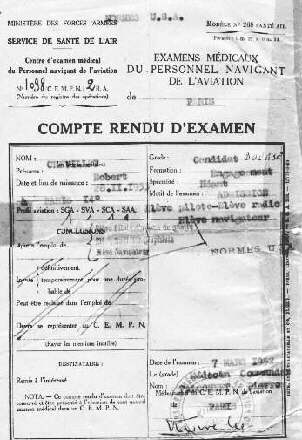 NORMES U.S.A.
MINISTÈRE DES FORCES ARMÉES
SERVICE DE SANTÉ DE L'AIR
Centre d'examen médical
du Personnel navigant de l'aviation
(Numéro du registre des opérations)
EXAMENS MÉDICAUX
DU PERSONNEL NAVIGANT
DE L'AVIATION
de
PARIS
COMPTE RENDU D'EXAMEN
NOM :
Prénoms : Robert
Date et lieu de naissance :
à PARIS 14°
Profil aviation : SGA - SVA - SCA - SAA
CONCLUSIONS
Apte à l'emploi de
définitivement
Inapte temporairement pour une durée probable de
Peut être réadmis dans l'emploi de
Devra se représenter au C. E. M. P. N.
(Rayer les mentions inutiles)
Grade : Candidat
Formation : Engagement
Spécialité : Néant
Motif de l'examen : ADMISSION
Élève pilote-Élève radio
Élève navigateur
NORMES U
DESTINATAIRE :
Remis à l'intéressé
NOTA. — Ce compte rendu d'examen doit être
conservé et être présenté à l'occasion de tout nouvel
examen médical dans un C. E. M. P. N.
Date de l'examen : 7 MARS
Le (grade) Médecin Commandant
Nom : Pierre
Médecin-chef du C. E. M. P. N. de
PARIS